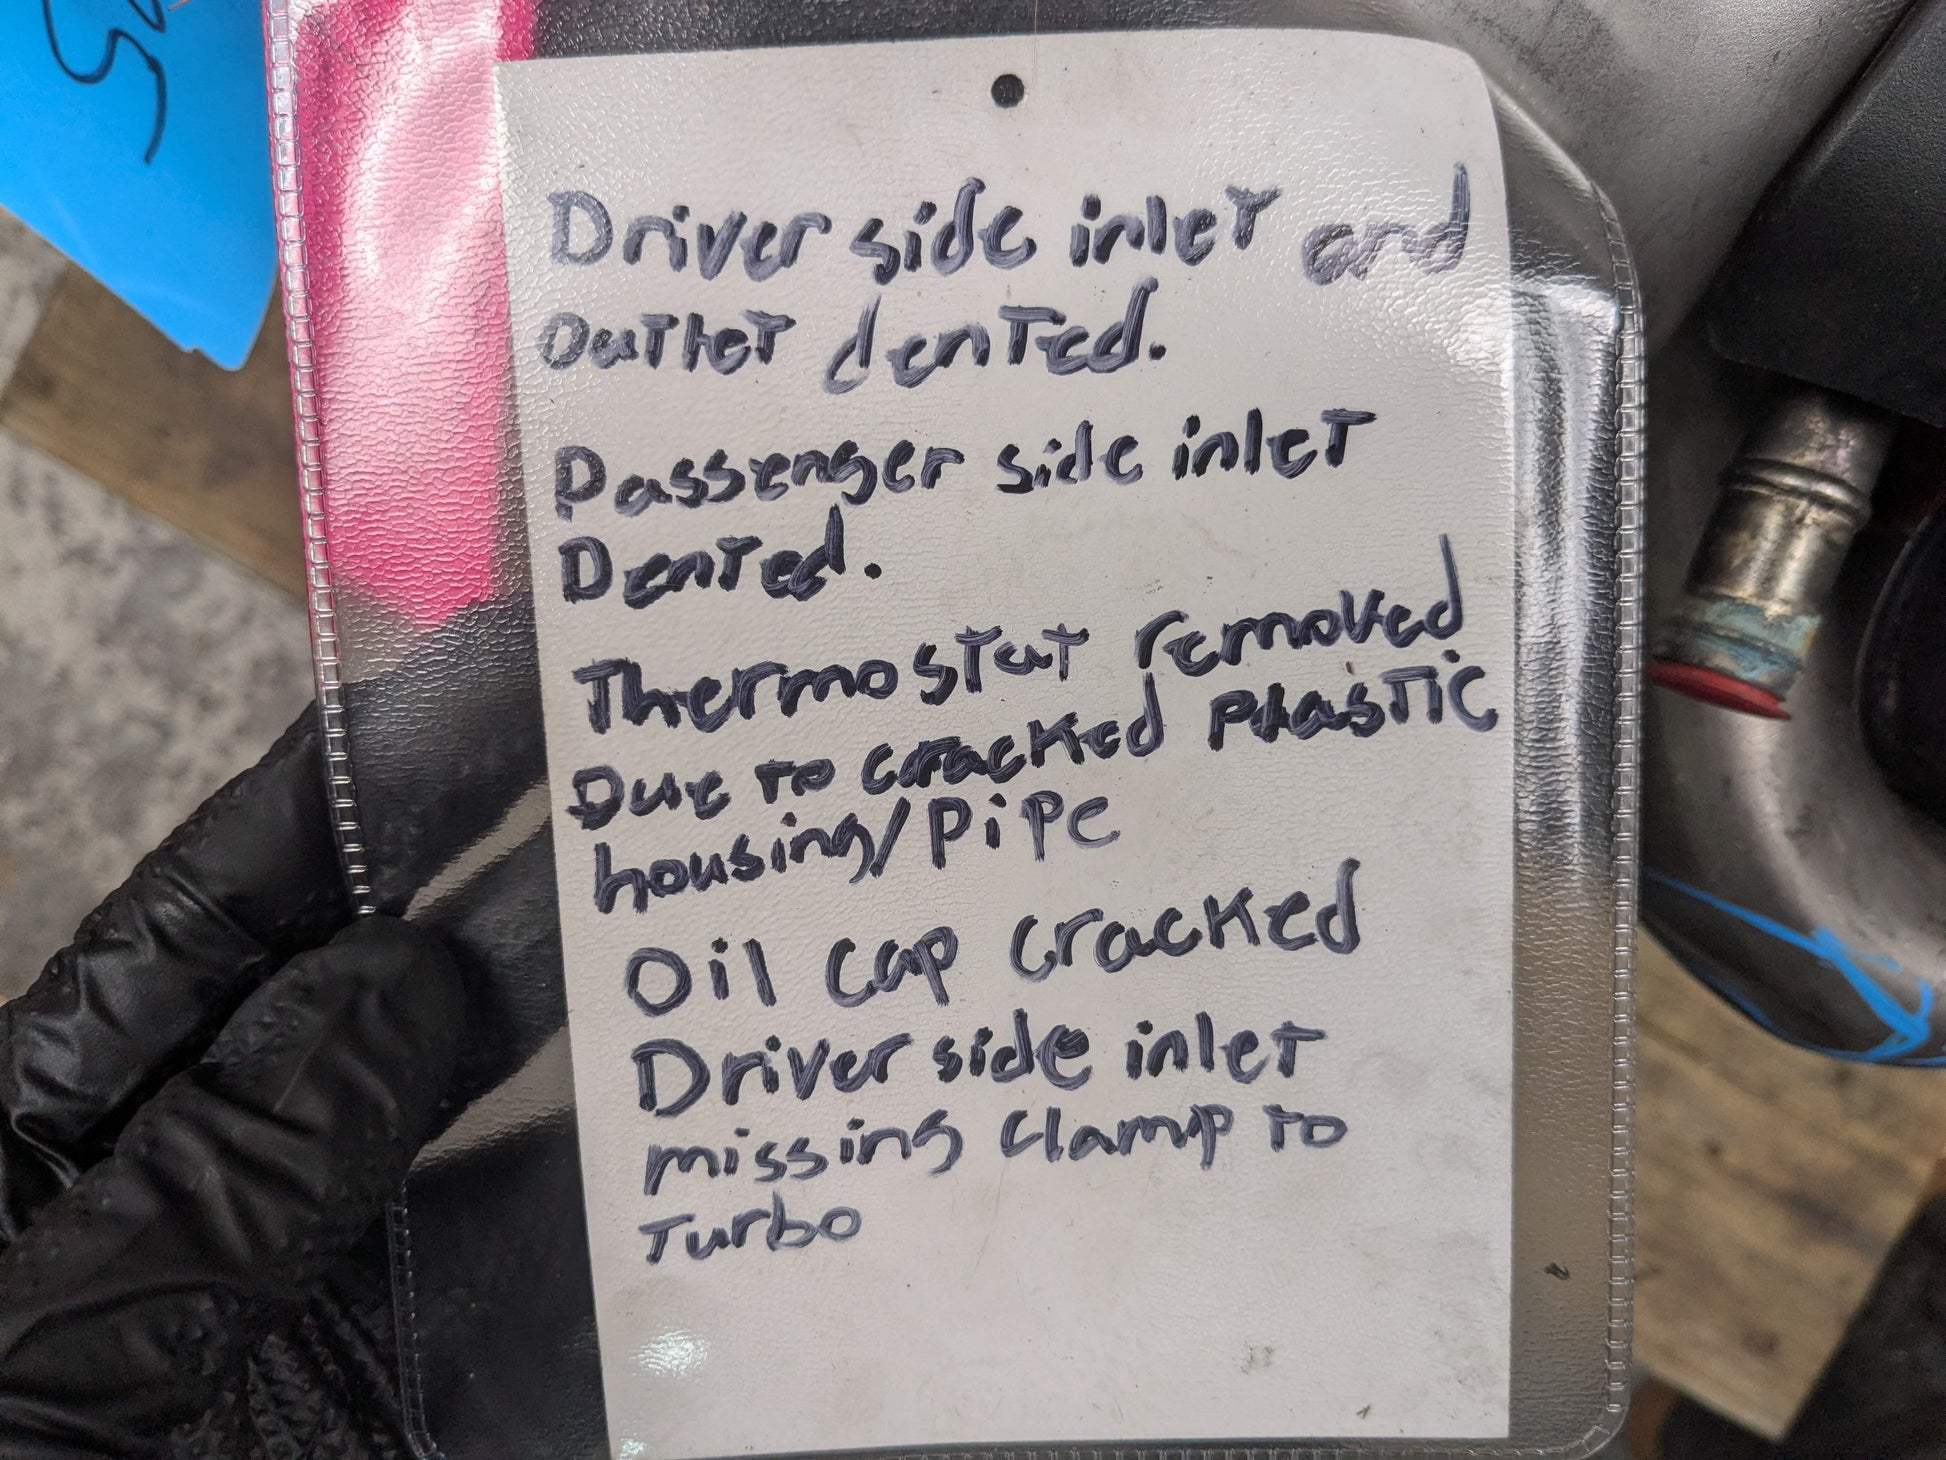 Driver side inlet and
outlet dented.
Passenger side inlet
Dented.
Thermostat removed
Due to cracked plastic
housing/pipe
Oil cap cracked
Driver side inlet
missing clamp to
Turbo